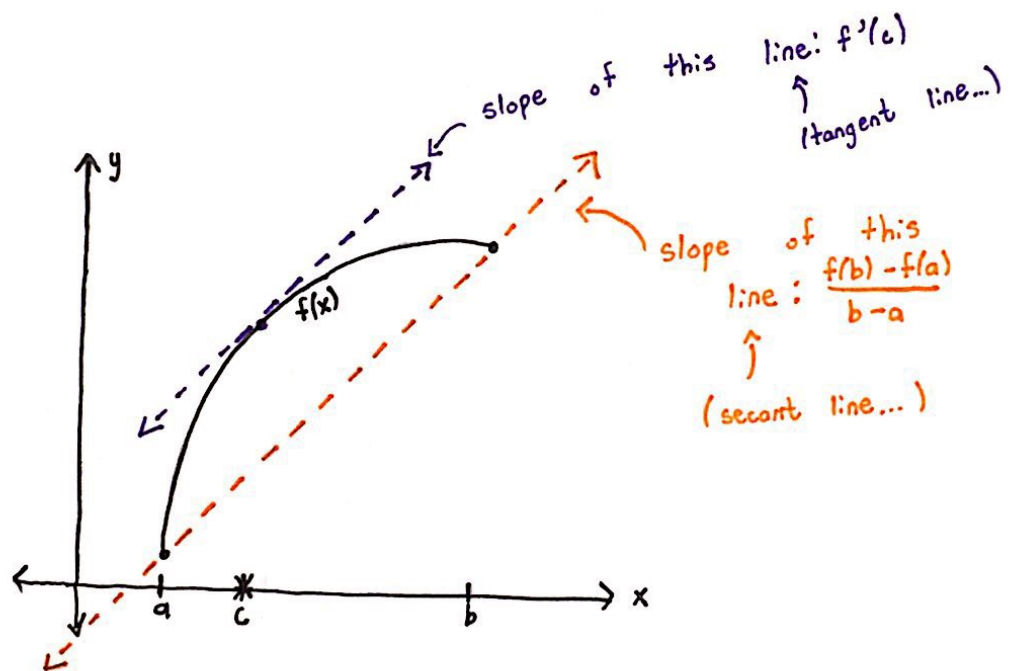 slope of this line: f'(c)
(tangent line...)
y
slope of this
line: f(b) - f(a)
b - a
(secant line...)
f(x)
a
c
b
x